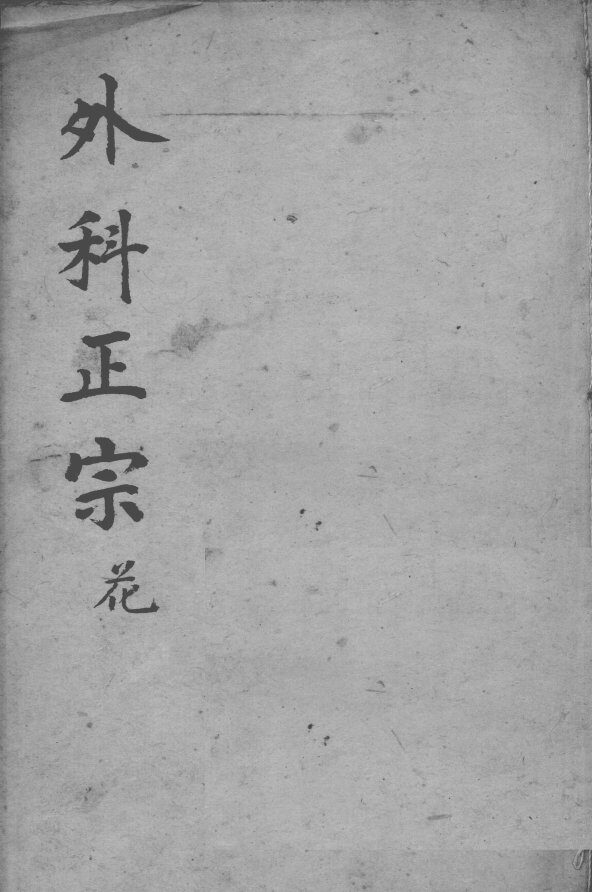 外科正宗 花